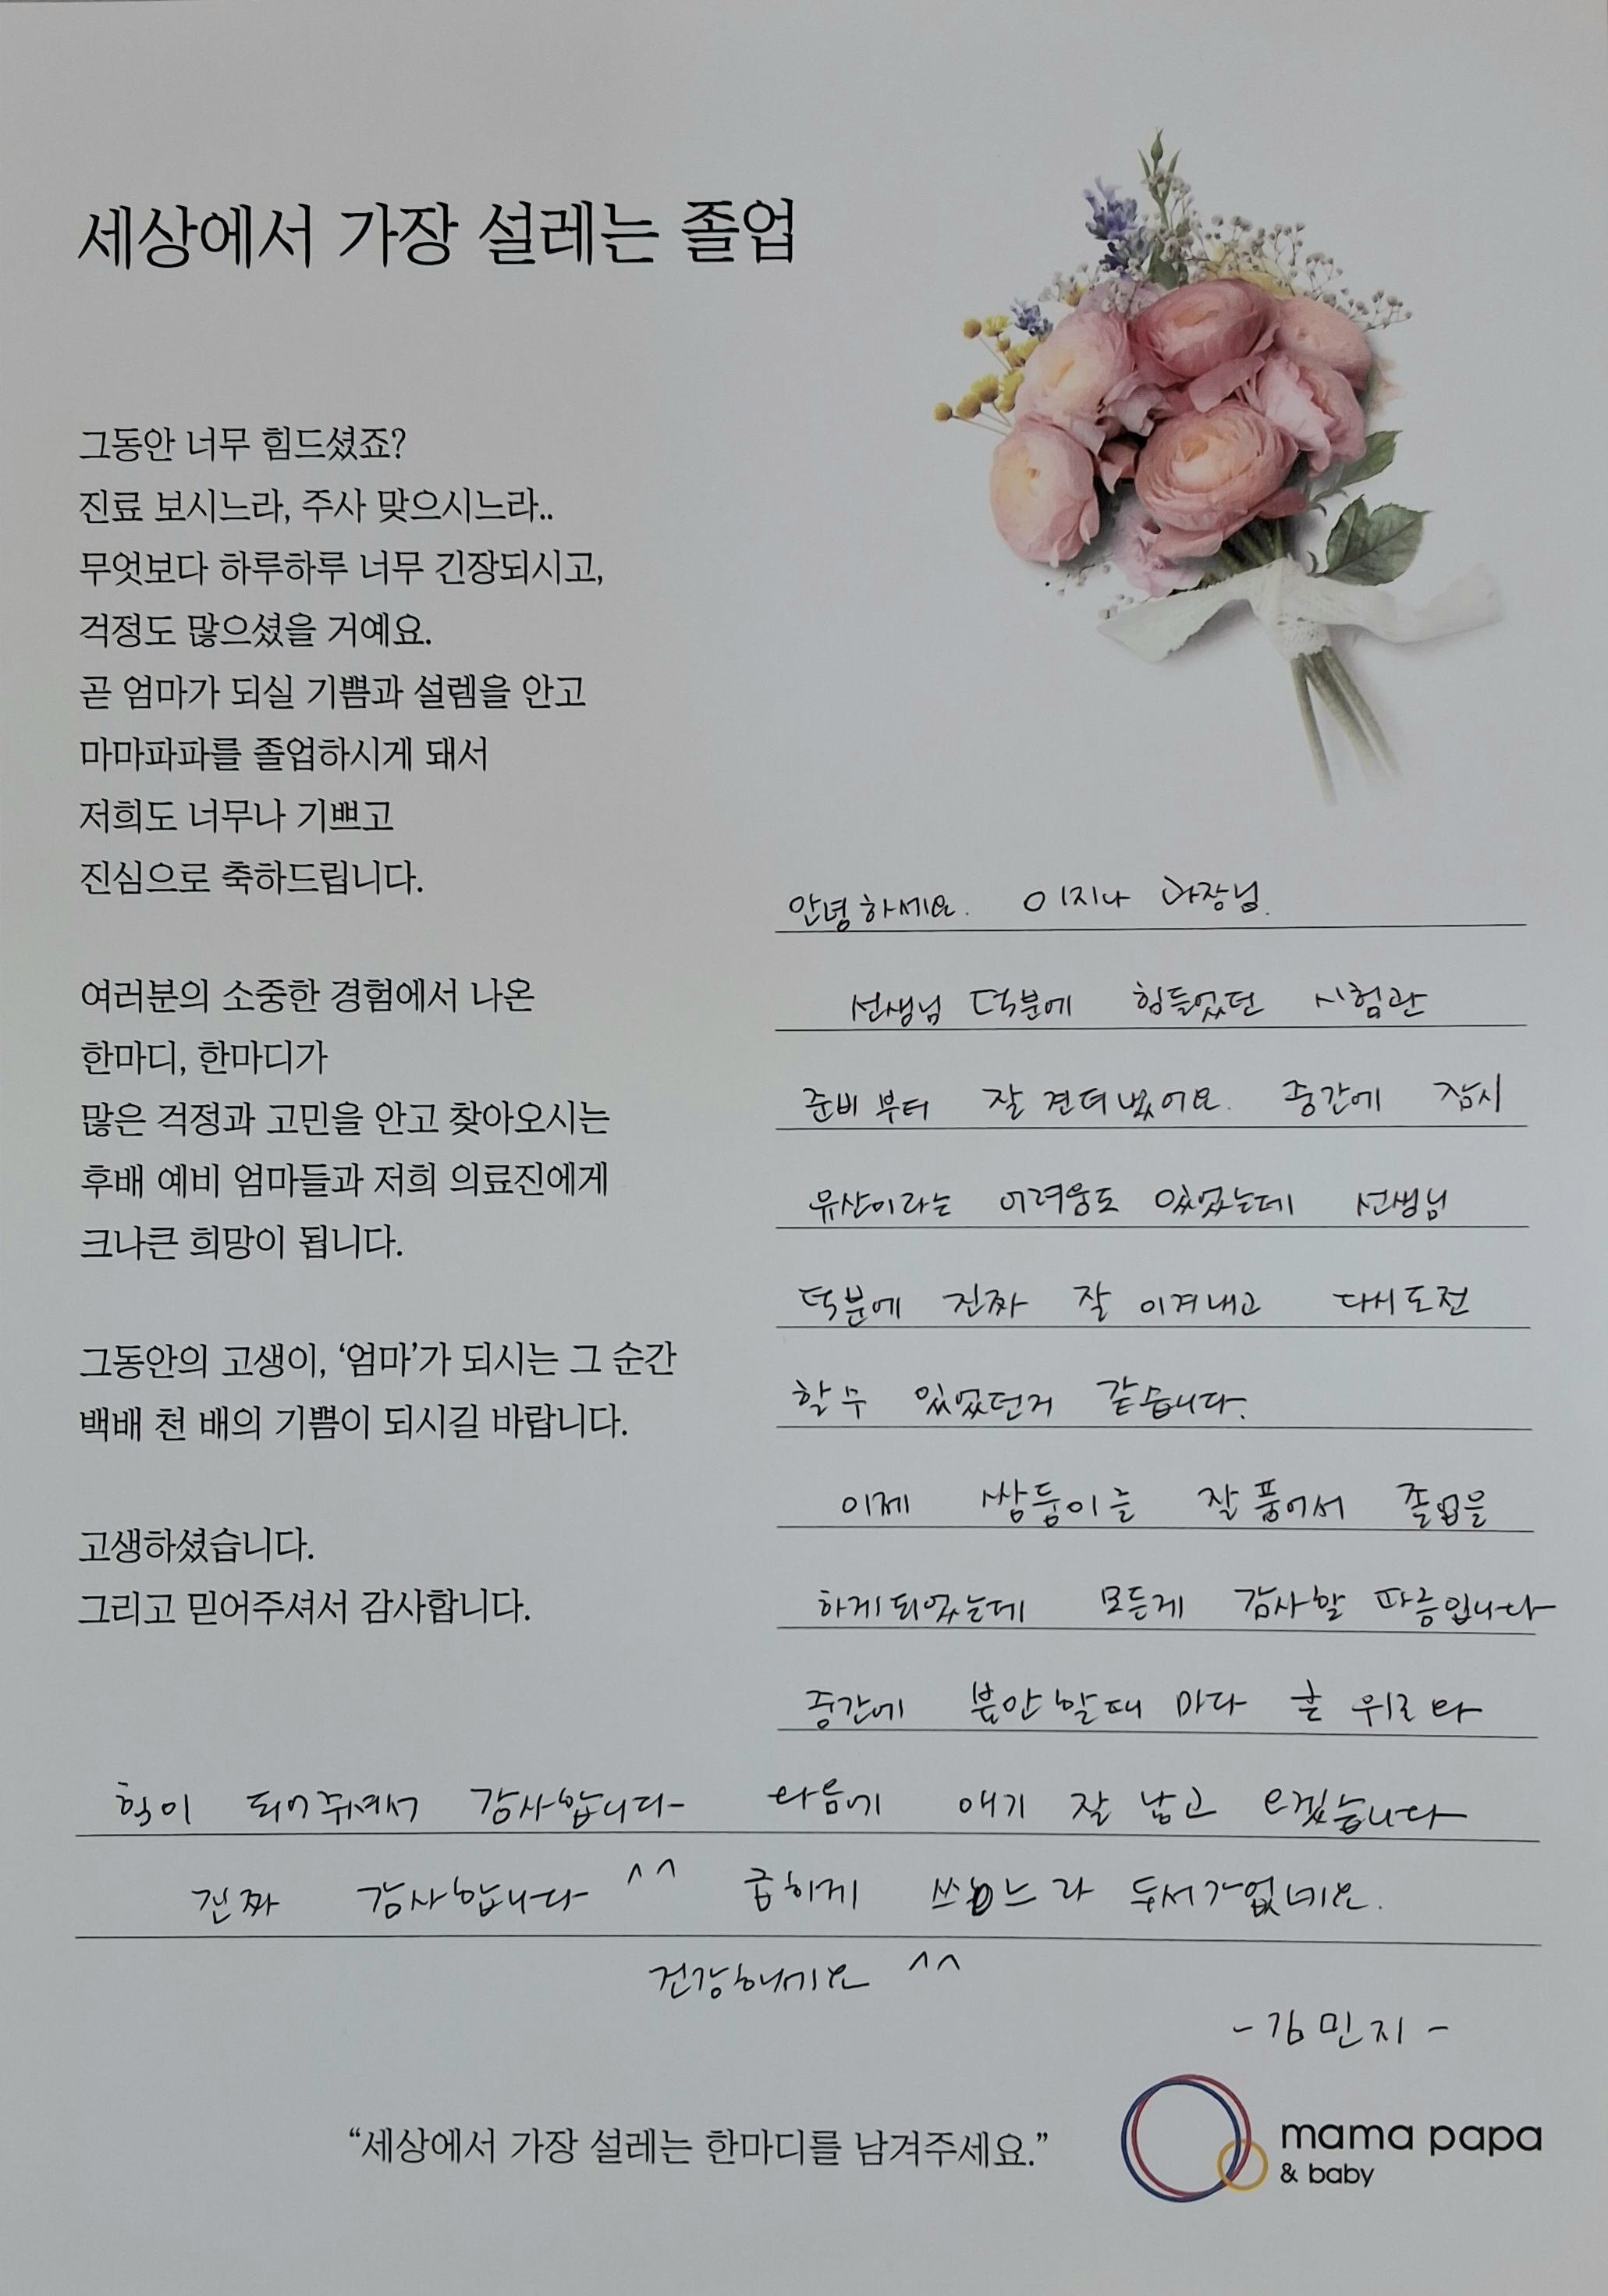 세상에서 가장 설레는 졸업
그동안 너무 힘드셨죠?
진료 보시느라, 주사 맞으시느라..
무엇보다 하루하루 너무 긴장되시고,
걱정도 많으셨을 거예요.
곧 엄마가 되실 기쁨과 설렘을 안고
마마파파를 졸업하시게 돼서
저희도 너무나 기쁘고
진심으로 축하드립니다.
여러분의 소중한 경험에서 나온
한마디, 한마디가
많은 걱정과 고민을 안고 찾아오시는
후배 예비 엄마들과 저희 의료진에게
크나큰 희망이 됩니다.
그동안의 고생이, ‘엄마’가 되시는 그 순간
백배 천 배의 기쁨이 되시길 바랍니다.
고생하셨습니다.
그리고 믿어주셔서 감사합니다.
안녕하세요. 이지나 과장님.
선생님 덕분에 힘들었던 시험관
준비부터 잘 견뎌냈어요. 중간에 잠시
유산이라는 어려움도 있었는데 선생님
덕분에 진짜 잘 이겨내고 다시도전
할수 있었던거 같습니다.
이제 쌍둥이를 잘 품어서 졸업을
하게되었는데 모든게 감사할 따름입니다
중간에 불안할때 마다 큰 위로와
힘이 되어주셔서 감사합니다 다음에 애기 잘 낳고 오겠습니다
진짜 감사합니다 ^^ 급하게 쓰느라 두서가없네요.
건강하세요 ^^
- 김민지 -
“세상에서 가장 설레는 한마디를 남겨주세요.”
mama papa
& baby